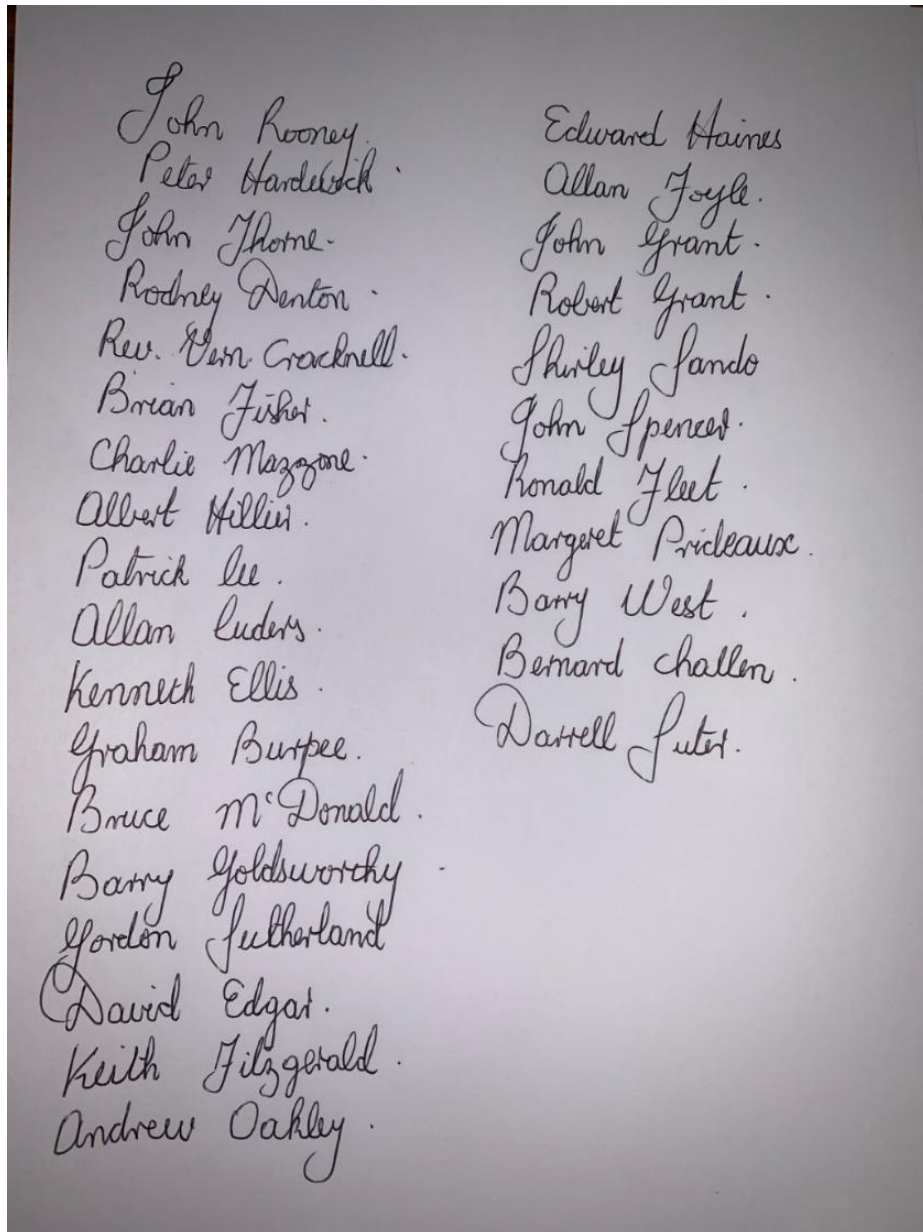 John Rooney.
Peter Hardwick.
John Thorne.
Rodney Denton.
Rev. Vern Cracknell.
Brian Fisher.
Charlie Mazzone.
Albert Hillier.
Patrick Lee.
Allan Luders.
Kenneth Ellis.
Graham Burpee.
Bruce McDonald.
Barry Goldsworthy.
Gordon Sutherland
David Edgar.
Keith Fitzgerald.
Andrew Oakley.
Edward Haines
Allan Foyle.
John Grant.
Robert Grant.
Shirley Sando
John Spencer.
Ronald Fleet.
Margeret Prideaux.
Barry West.
Bernard Challen.
Darrell Suter.